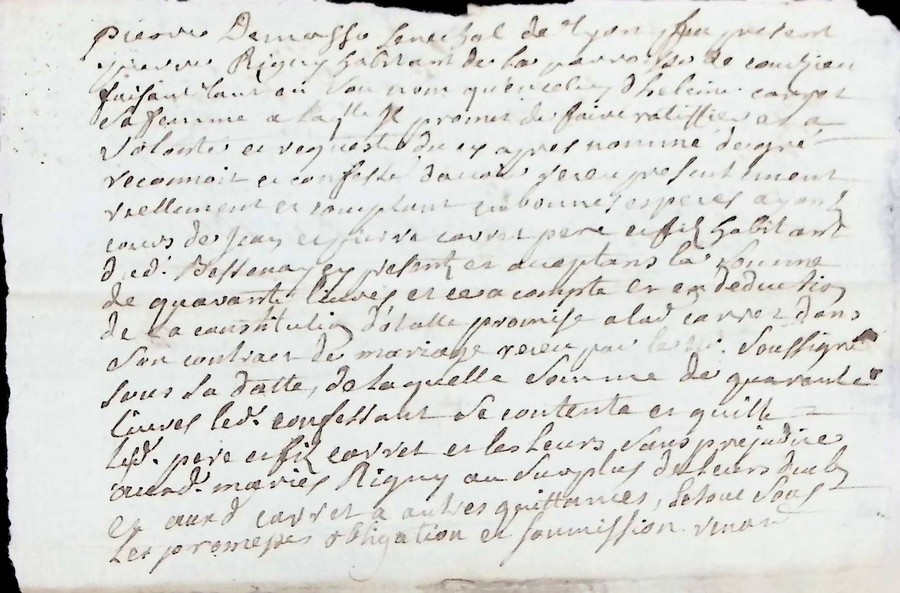 pierre Demasso Senechal de Lyon, fut present
pierre Rigny habitant de la parroisse de courzieu
faisant tant en Son nom qu'en celuy d'heleine carret
Sa femme a laqlle Il promet de faire ratiffier et a
volonté et requeste du cy apres nommé de gré
reconnoit et confesse d'avoir receu presentement
reellement et comptant en bonnes especes ayant
cours de Jean et pierre carret pere et fil habitant
dud. Bessenay cy present et aceptans la Somme
de quarante livres et ce a compte et en deduction
de la constitution dotalle promise a lad. carret dans
Son contract de mariage receu par le no. Soussigné
sous Sa datte, de laquelle Somme de quarante
livres led. confessant Se contente et quitte
lesd. pere et fil carret et les leurs Sans prejudice
auxd. mariés Rigny au Surplus de leurs droits
et auxd carret a autres quittances, le tout Sous
les promesses obligation et soumission renon